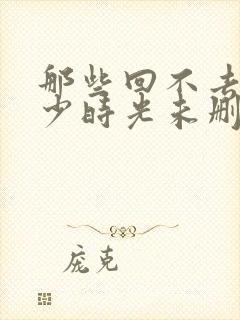 那些回不去
少时光未删
庞克